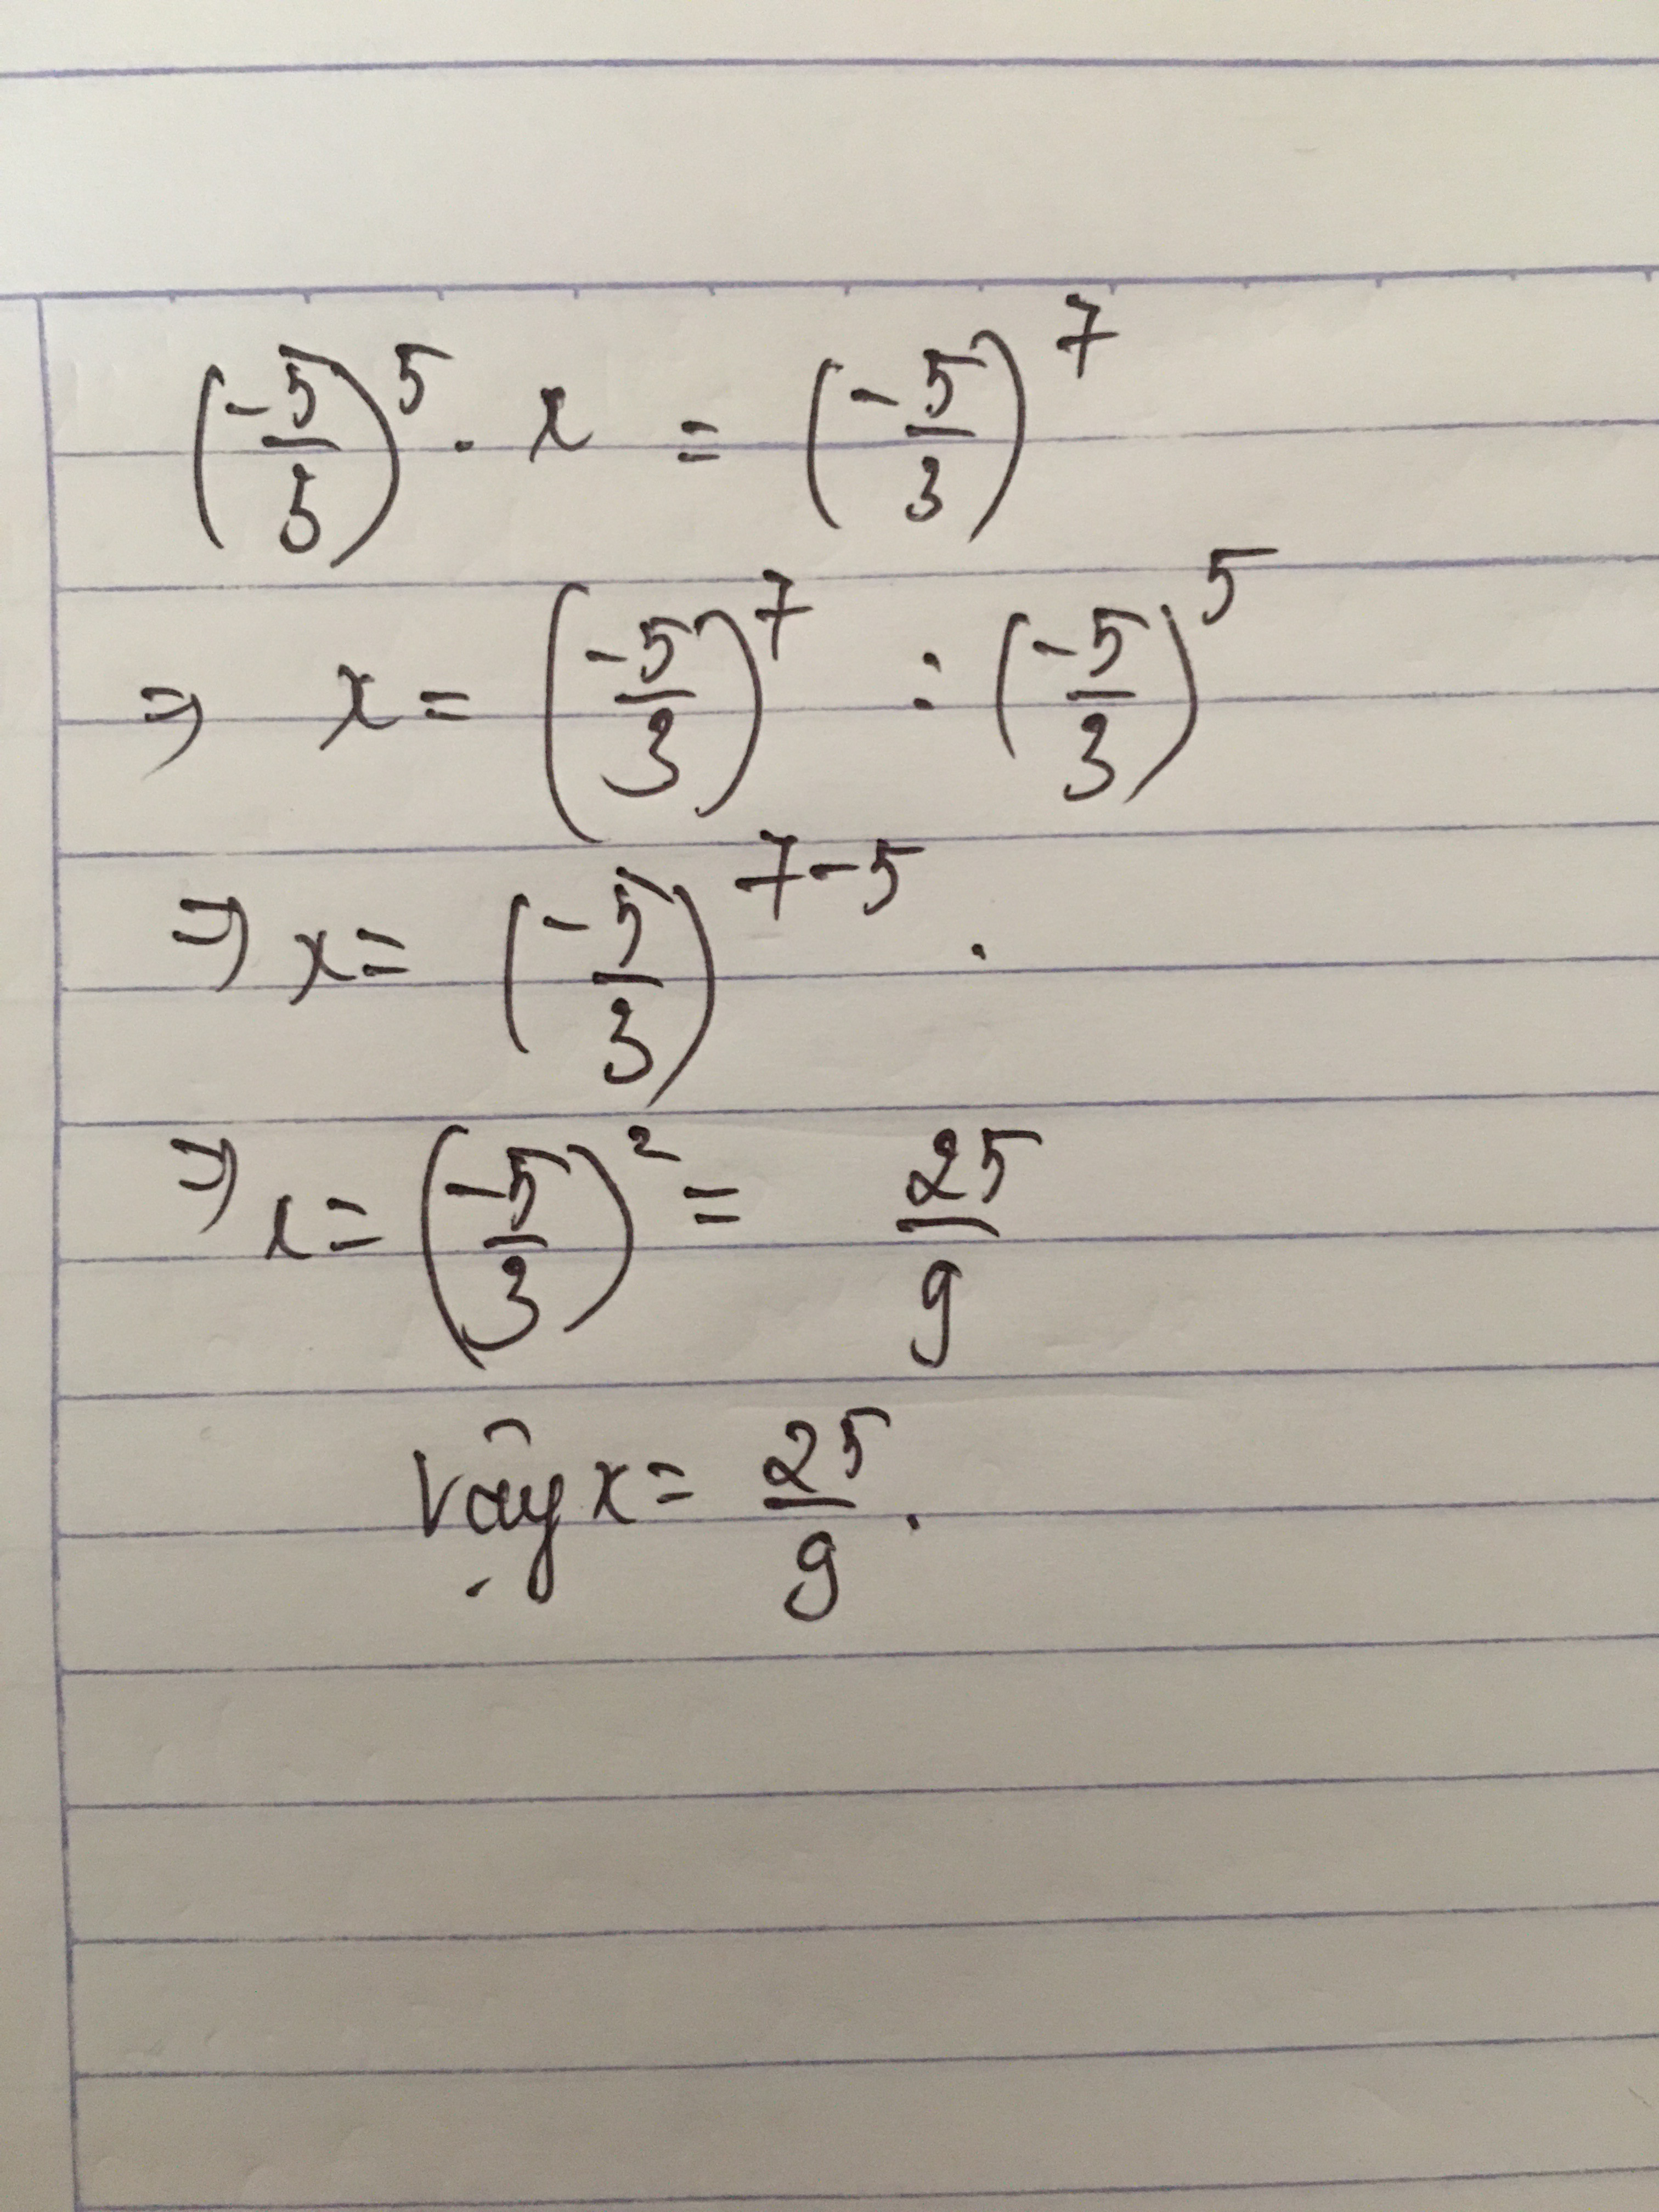 (-5/5)^5 . x = (-5/3)^7
⇒ x = (-5/3)^7 : (-5/3)^5
⇒ x = (-5/3)^7-5 .
⇒ x = (-5/3)^2 = 25/9
Vậy x = 25/9 .